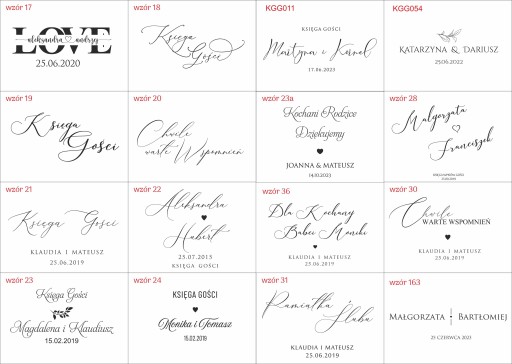 wzór 17
LOVE
aleksandra andrzej
25.06.2020
wzór 18
Księga
Gości
KGG011
KSIĘGA GOŚCI
Martyna i Kornel
17.06.2023
KGG054
KATARZYNA & DARIUSZ
25.06.2022
wzór 19
Księga
Gości
wzór 20
Chwile
warte Wspomnień
wzór 23a
Kochani Rodzice
Dziękujemy
JOANNA & MATEUSZ
14.10.2023
wzór 28
Małgorzata
Franciszek
wzór 21
Księga Gości
KLAUDIA I MATEUSZ
25.06.2019
wzór 22
Aleksandra
Hubert
25.07.2015
KSIĘGA GOŚCI
wzór 36
Dla Kochanej
Babci Moniki
KLAUDIA I MATEUSZ
25.06.2019
wzór 30
Chwile
WARTE WSPOMNIEŃ
KLAUDIA I MATEUSZ
25.06.2019
wzór 23
Księga Gości
Magdalena i Klaudiusz
15.02.2019
wzór 24
KSIĘGA GOŚCI
Monika i Tomasz
15.02.2019
wzór 31
Pamiątka
Ślubu
KLAUDIA I MATEUSZ
25.06.2019
wzór 163
MAŁGORZATA BARTŁOMIEJ
25 CZERWCA 2022